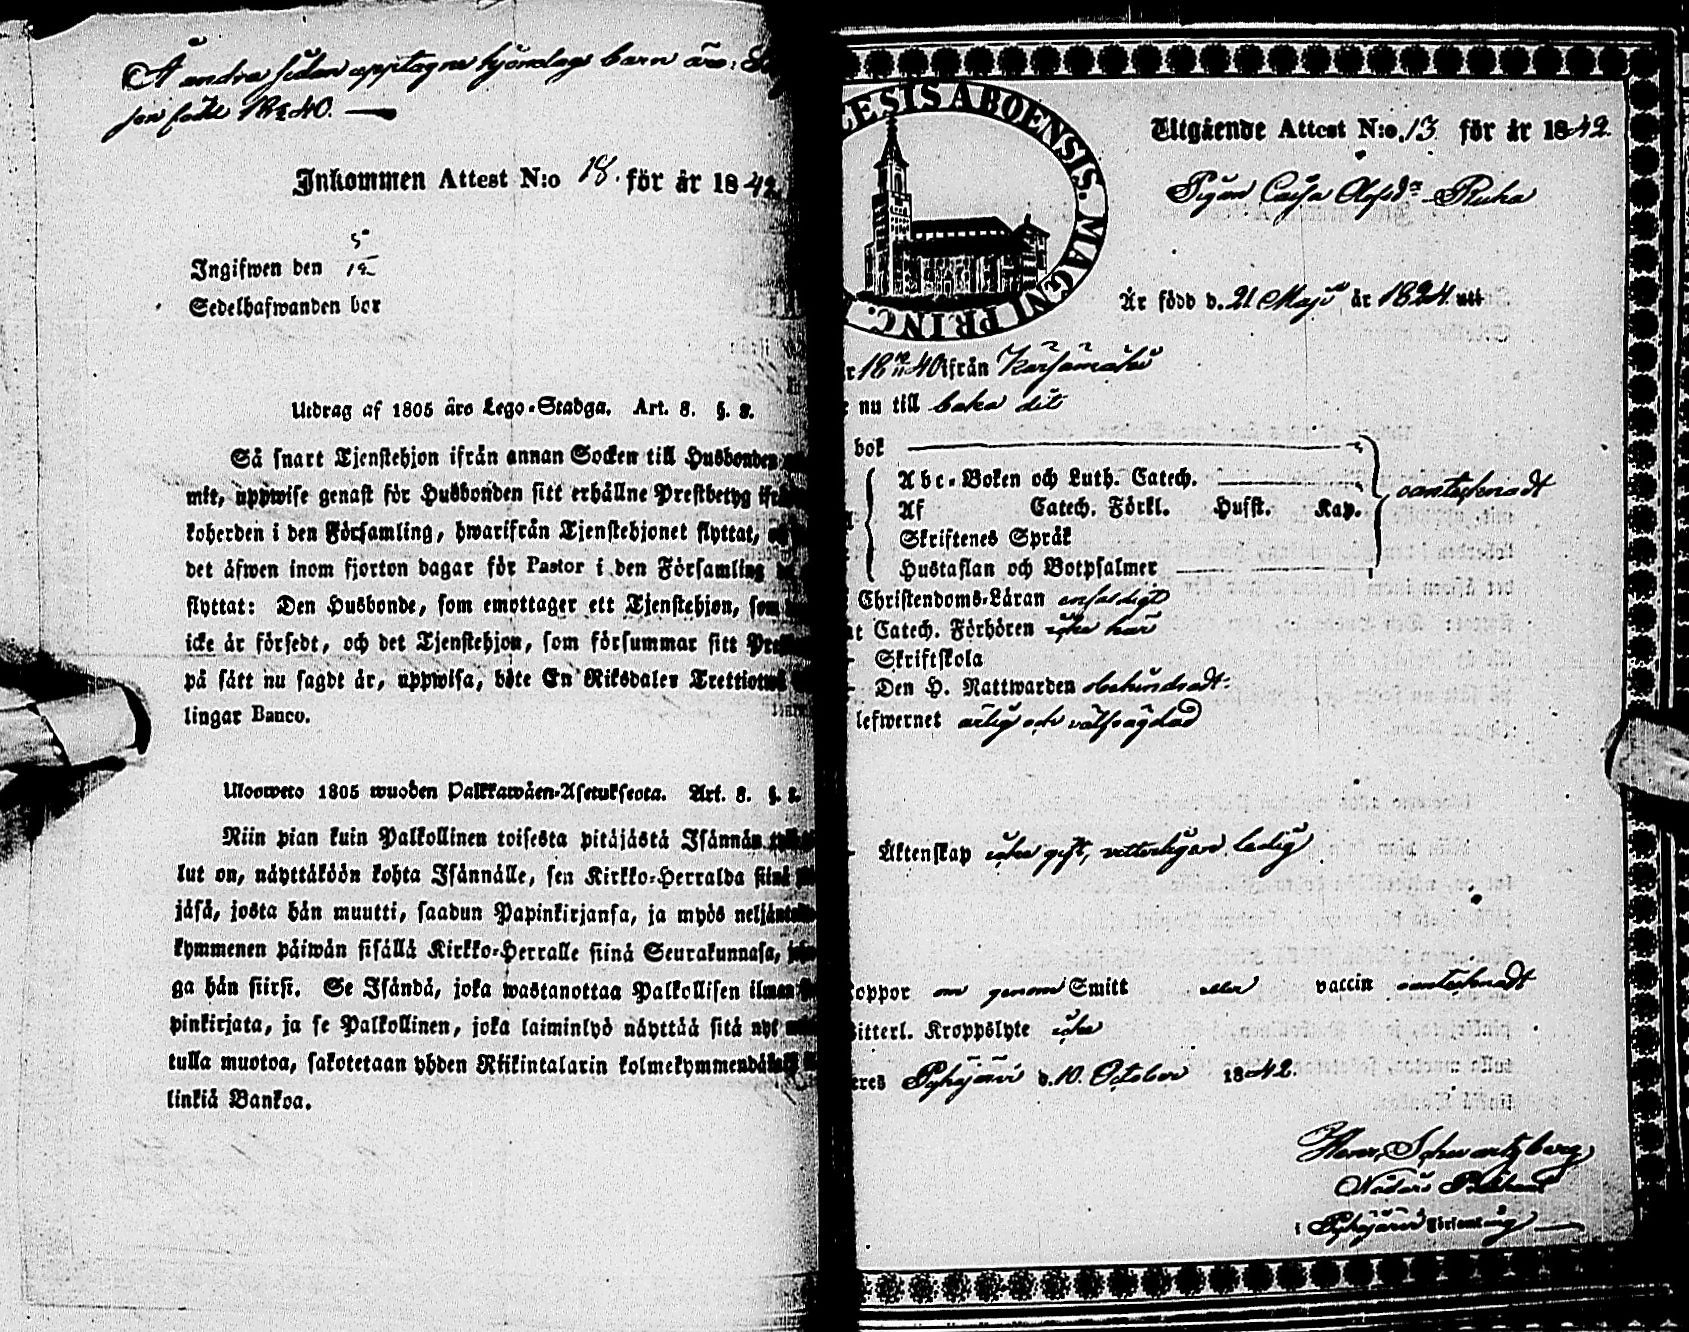 Å andra sidan upptagne hjonelags barn äro:
son född 18 40.
Inkommen Attest N:o 18. för år 1842
Ingifwen den 5
12
Sedelhafwanden bor
Utdrag af 1805 års Lego-Stadga. Art. 8. §. 2.
Så snart Tjenstehjon ifrån annan Socken till Husbonden
mit, uppwise genast för Husbonden sitt erhållne Prestbetyg ifrån
koherden i den Församling, hwarifrån Tjenstehjonet flyttat,
det äfwen inom fjorton dagar för Pastor i den Församling
flyttat: Den Husbonde, som emottager ett Tjenstehjon, som
icke är försedt, och det Tjenstehjon, som försummar sitt
på sätt nu sagdt är, uppwisa, böte En Riksdaler Trettiotwå
lingar Banco.
Ulosweto 1805 wuoden Palkkawäen-Asetuksesta. Art. 8. §. 2.
Niin pian kuin Palkollinen toisesta pitäjästä Isännän
lut on, näyttäköön kohta Isännälle, sen Kirkko-Herralda siinä
jäsä, josta hän muutti, saadun Papinkirjansa, ja myös neljäntoista
kymmenen päiwän sisällä Kirkko-Herralle siinä Seurakunnasa,
ga hän siirsi. Se Isändä, joka wastanottaa Palkollisen ilman
pinkirjata, ja se Palkollinen, joka laiminlyö näyttää sitä nyt
tulla muotoa, sakotetaan yhden Riikintalarin kolmekymmendäkaksi
linkiä Bankoa.
ESIS ABOENSIS. MAGNI PRINC.
Utgående Attest N:o. 13 för år 1842.
Pigan Caisa Olofsd:r Ruha
Är född d. 21 Maji år 1824. utt
r 18 10/11 40 ifrån Kärsämäki
nu till baka dit
bok
Abc-Boken och Luth. Catech.
Af Catech. Förkl. Husst. Kap. oanteknadt
Skriftenes Språk
Hustaflan och Botpsalmer
Christendoms-Läran enfaldigt
t Catech. Förhören icke här
Skriftskola
Den H. Nattwarden obehindradt.
lefwernet ärlig och välfrägdad
Äktenskap icke gift, vitterligen ledig
oppor om genom Smitt eller vaccin oanteknadt
itterl. Kroppslyte icke
eres Pyhäjärvi d. 10. October 1842.
Henr. Schwartzberg
i Pyhäjärvi Församling